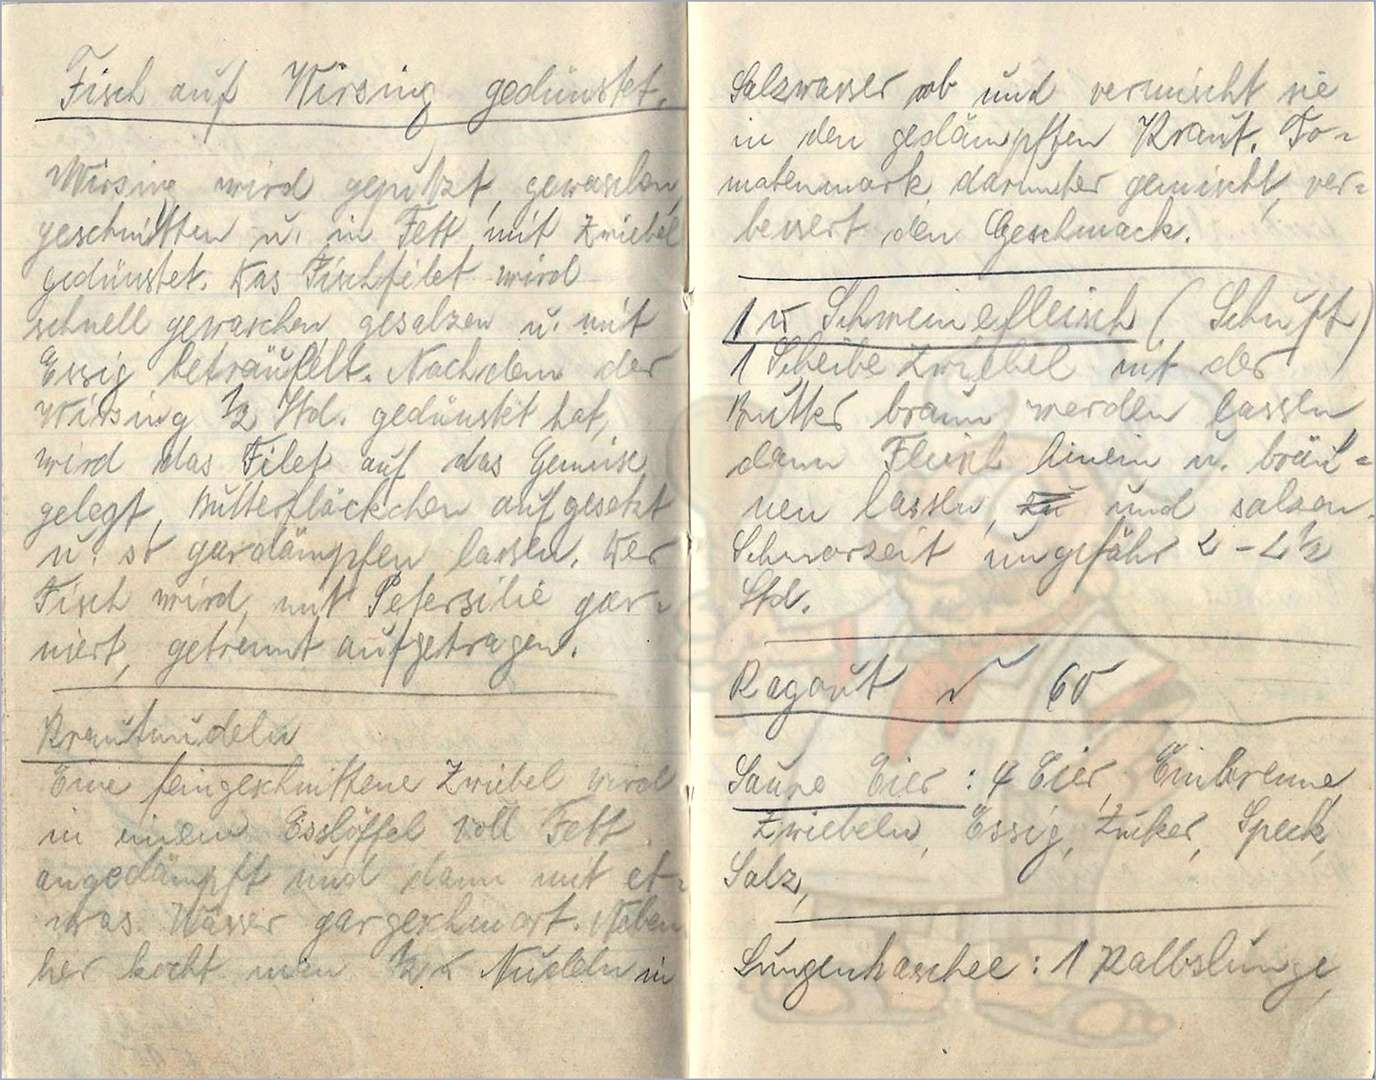 Fisch auf Wirsing gedünstet.
Wirsing wird geputzt, gewaschen,
geschnitten u. in Fett mit Zwiebel
gedünstet. Das Fischfilet wird
schnell gewaschen, gesalzen u. mit
Essig beträufelt. Nachdem der
Wirsing 1/2 Std. gedünstet hat,
wird das Filet auf das Gemüse
gelegt, Butterfläckchen aufgesetzt
u. so gardämpfen lassen. Der
Fisch wird, mit Petersilie gar-
niert, getrennt aufgetragen.
Krautnudeln
Eine feingeschnittene Zwiebel wird
in einem Esslöffel voll Fett
angedämpft und dann mit et-
was Wasser gargeschmort. Neben
her kocht man 1/2 Nudeln in
Salzwasser ab und vermischt sie
in den gedämpften Kraut. To-
matenmark, darunter gemischt, ver-
bessert den Geschmack.
1 Schweinefleisch (Schuft)
1 Scheibe Zwiebel mit der
Butter braun werden lassen,
dann Fleisch hinein u. bräu-
nen lassen, und salzen.
Schmorzeit ungefähr 2 - 2 1/2
Std.
Ragout
Saure Eier : 4 Eier, Einbrenne,
Zwiebeln, Essig, Zucker, Speck,
Salz,
Lungenhaschee : 1 Kalbslunge,